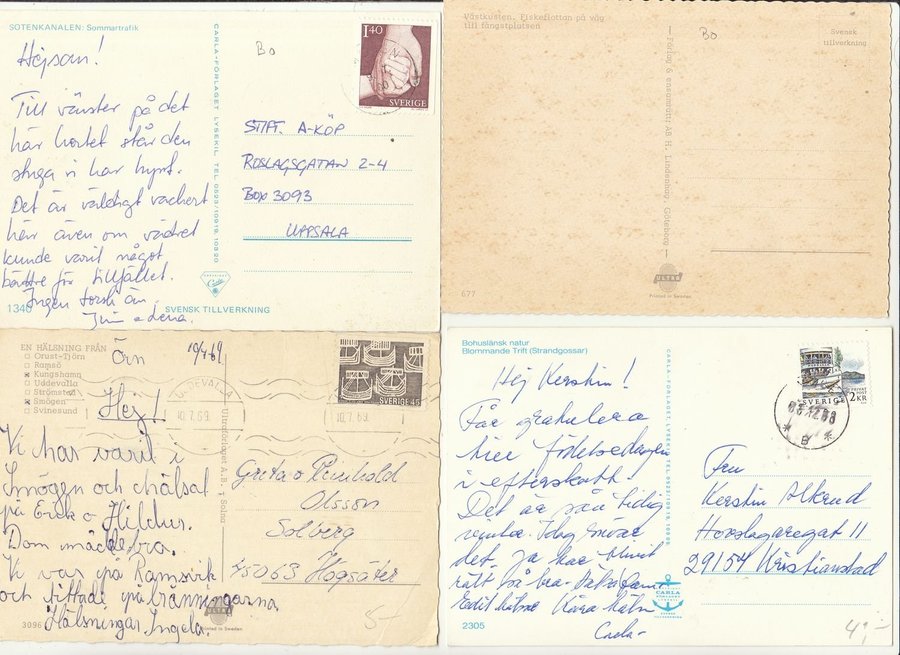 SOTENKANALEN: Sommartrafik
Bo
Hejsan!
Till vänster på det
här kortet står den
stuga vi har hyrt.
Det är väldigt vackert
här även om vädret
kunde varit något
bättre för tillfället.
Ingen torsk än.
Jim o Lena.
1340
SVENSK TILLVERKNING
CARLA-FÖRLAGET LYSEKIL. TEL. 0523/10919, 10920
Carla
1.40
SVERIGE
STIFT. A-KÖP
ROSLAGSGATAN 2-4
BOX 3093
UPPSALA
Västkusten. Fiskeflottan på väg
till fångstplatsen
Bo
Svensk
tillverkning
Förlag & ensamrätt: AB H. Lindenhag, Göteborg
ULTRA
Printed in Sweden
677
EN HÄLSNING FRÅN
Orust-Tjörn
Ramsö
Kungshamn
Uddevalla
Strömstad
Smögen
Svinesund
10/7-69
Hej!
Vi har varit i
Smögen och hälsat
på Erik o Hildur.
Dom mådde bra.
Vi var på Ramsvik
och tittade på bränningarna
Hälsningar Ingela.
3096
UDDEVALLA
10.7.69
10.7.69
SVERIGE 45
Ultraförlaget A.B. Solna
Greta o
Olsson
Solberg
45063 Högsäter
ULTRA
Printed in Sweden
5
Bohuslänsk natur
Blommande Trift (Strandgossar)
Hej Kerstin!
Får gratulera
födelsedagen
i efterskott.
Det är
det. ska
rätt bra.
Edit
Carla
2305
CARLA-FÖRLAGET, LYSEKIL, TEL. 0523/10919, 10920
CARLA
FÖRLAGET
LYSEKIL
SVENSK
TILLVERKNING
SVERIGE
PRIVAT
POST
2KR
12.88
B
Fru
Kerstin
11
29154 Kristianstad
4:-